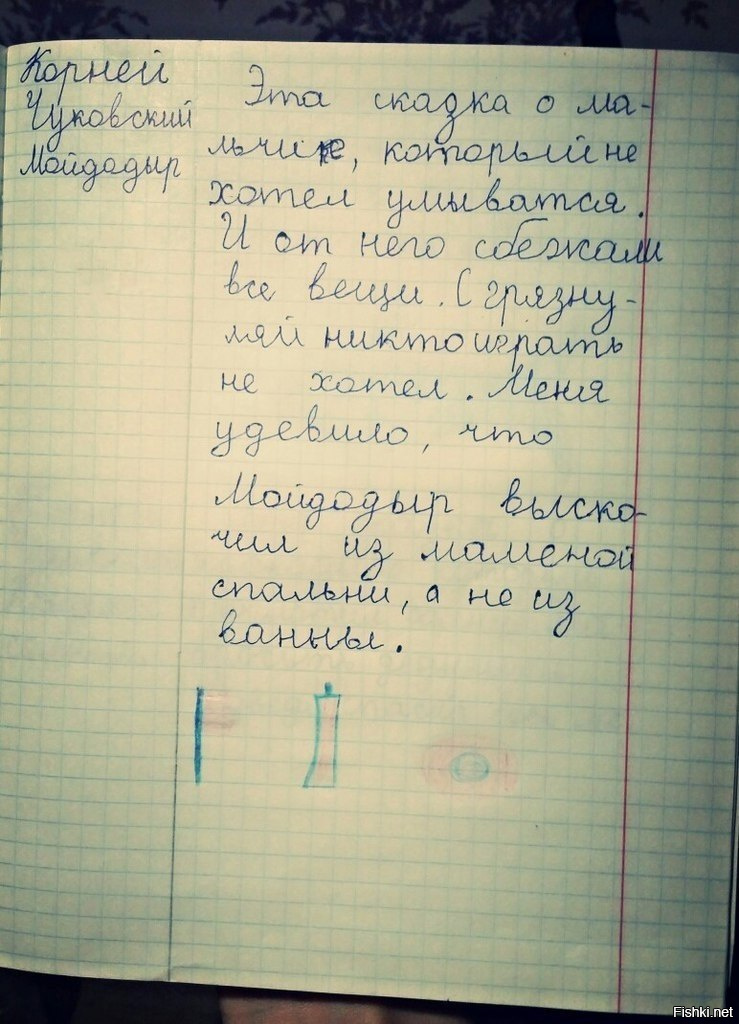 Корней
Чуковский
Мойдодыр
Эта сказка о ма-
льчике, который не
хотел умыватся.
И от него сбежали
все вещи. С грязну-
ляй никто играть
не хотел. Меня
удевило, что
Мойдодыр выско-
чил из маменой
спальни, а не из
ванны.
Fishki.net